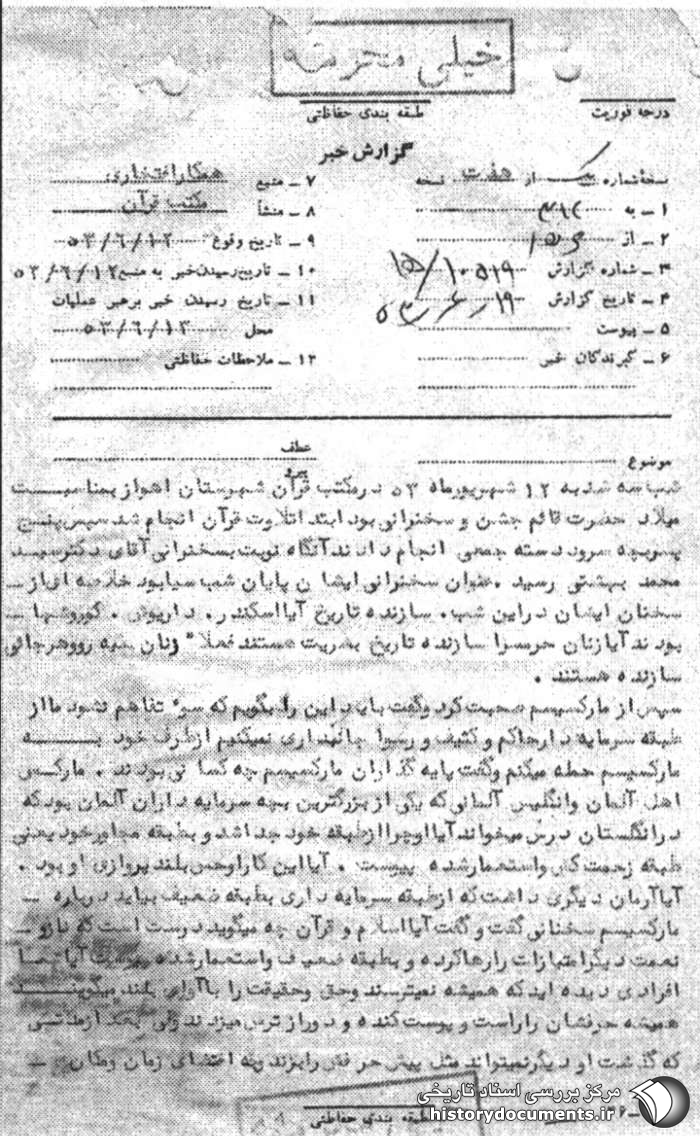 خیلی محرمانه
درجه فوریت
طبقه بندی حفاظتی
گزارش خبر
نسخه شماره یک از هفت نسخه
۱ ـ به
۲ ـ از
۳ ـ شماره گزارش ۱۰۵۱۹ / ۱۵
۴ ـ تاریخ گزارش ۱۹ / ۶ / ۵۳
۵ ـ پیوست
۶ ـ گیرندگان خبر
۷ ـ منبع همکار افتخاری
۸ ـ منشأ مکتب قرآن
۹ ـ تاریخ وقوع ۵۳/۶/۱۲
۱۰ ـ تاریخ رسیدن خبر به منبع ۵۳/۶/۱۲
۱۱ ـ تاریخ رسیدن خبر برهبر عملیات
محل ۵۳/۶/۱۳
۱۲ ـ ملاحظات حفاظتی
موضوع
عطف
پیرو
شب سه شنبه ۱۲ شهریورماه ۵۳ در مکتب قرآن شهرستان اهواز بمناسبت
میلاد حضرت قائم جشن و سخنرانی بود ابتدا تلاوت قرآن انجام شد سپس پنج
پسر بچه سرود دسته جمعی انجام دادند آنگاه نوبت بسخنرانی آقای دکتر سید
محمد بهشتی رسید . عنوان سخنرانی ایشان پایان شب سیا بود خلاصه ای از
سخنان ایشان در این شب . سازنده تاریخ آیا اسکندر . داریوش . کوروشها
بودند آیا زنان حرمسرا سازنده تاریخ بشریت هستند فعلا" زنان هرجائی
سازنده هستند .
سپس از مارکسیسم صحبت کرد و گفت باید این را بگویم که سوء تفاهم نشود ما از
طبقه سرمایه دار حاکم و کثیف و رسوا جانبداری نمیکنیم از طرف خود به
مارکسیسم حمله میکنم و گفت پایه گذاران مارکسیسم چه کسانی بودند . مارکس
اهل آلمان وانگلیس آلمانی که یکی از بزرگترین بچه سرمایه داران آلمان بود که
در انگلستان درس میخواند آیا او چرا از طبقه خود جدا شد و بطبقه مجاور خود یعنی
طبقه زحمت کش واستعمار شده پیوست . آیا این کار او حس بلند پروازی او بود .
آیا آرمان دیگری داشت که از طبقه سرمایه داری بطبقه ضعیف بیاید درباره
مارکسیسم سخنانی گفت و گفت آیا اسلام و قرآن چه میگوید درست است که ناز و
نعمت دیگر امتیازات را رها کرده و بطبقه ضعیف واستعمار شده پیوست آیا شما
افرادی دیده اید که همیشه نمیترسند وحق وحقیقت را با آوای بلند میگویند
همیشه حرفشان را راست و پوست کنده و دور از ترس میزدند ولی بعد از مدتی
که گذشت او دیگر نمیتواند مثل پیش حرفش را بزند زمان ومکان
طبقه بندی حفاظتی
مرکز بررسی اسناد تاریخی
historydocuments.ir